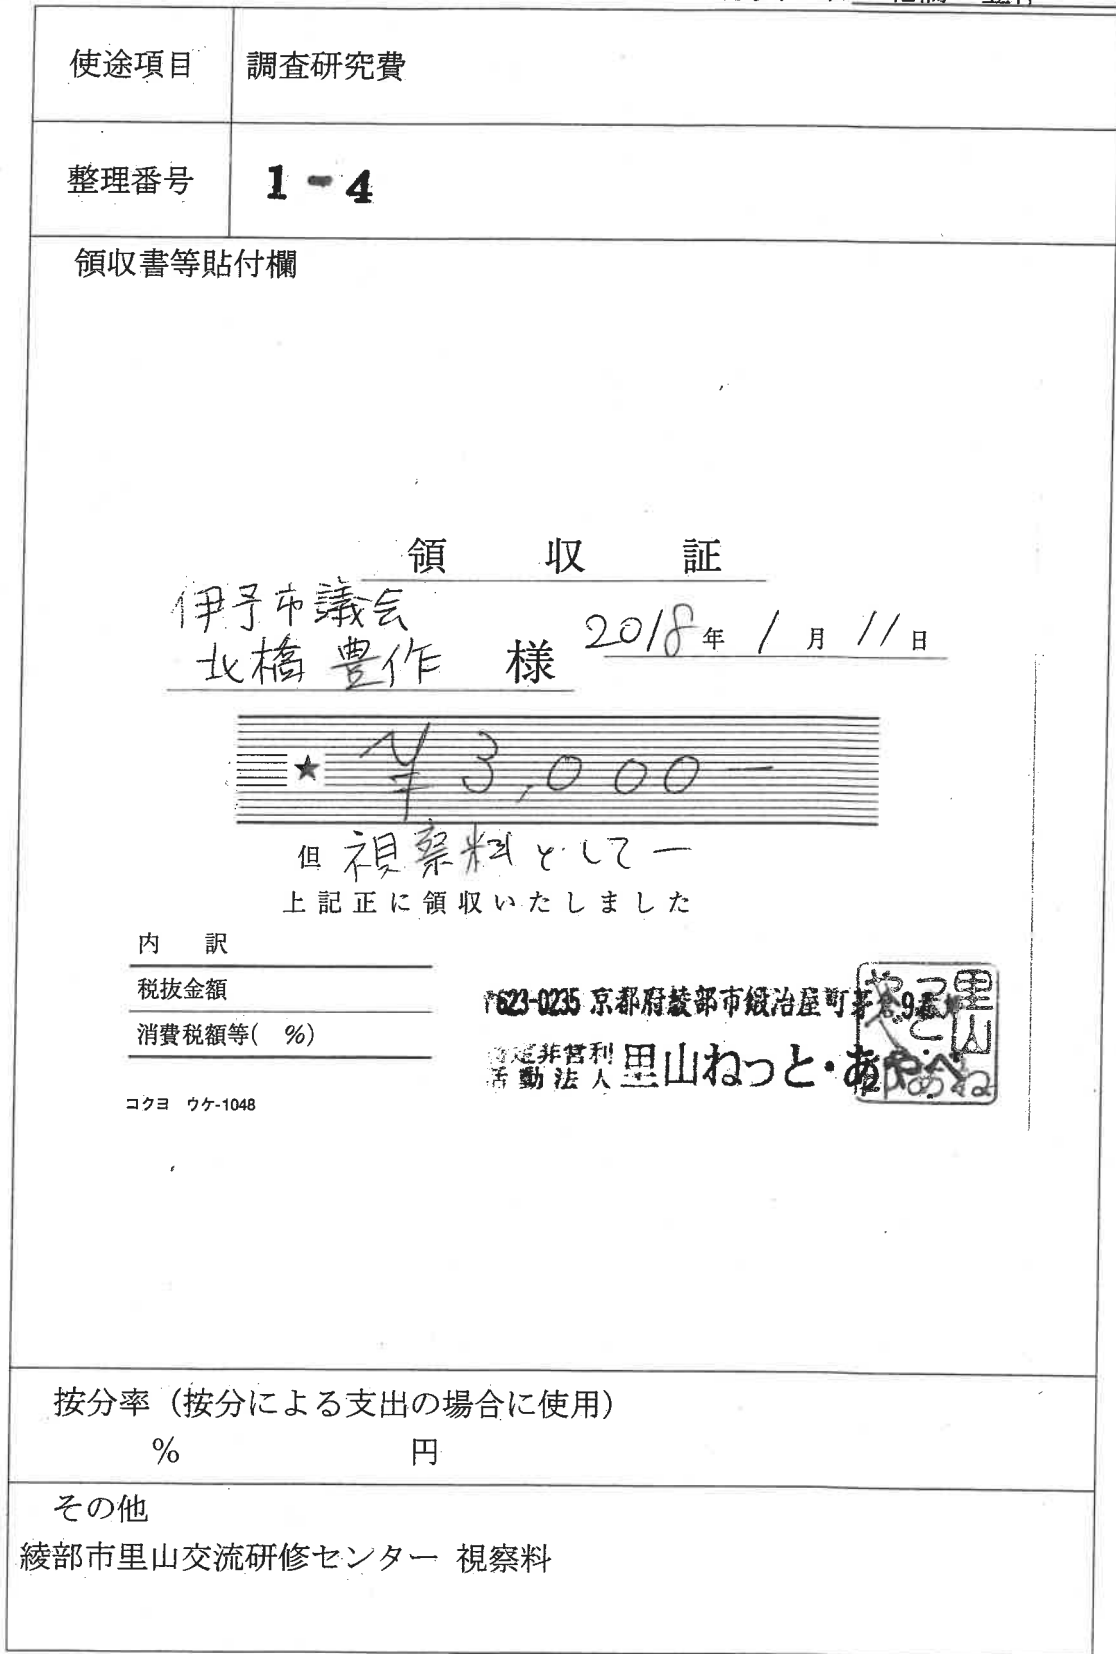 使途項目 調査研究費
整理番号 1-4
領収書等貼付欄
領収証
伊予市議会
北橋 豊作 様 2018年 1月 11日
★ ¥3,000-
但 視察料として一
上記正に領収いたしました
内訳
税抜金額
消費税額等( %)
〒623-0235 京都府綾部市鍛治屋町茅倉9番地
特定非営利
活動法人 里山ねっと・あやべ
コクヨ ウケ-1048
按分率(按分による支出の場合に使用)
% 円
その他
綾部市里山交流研修センター 視察料